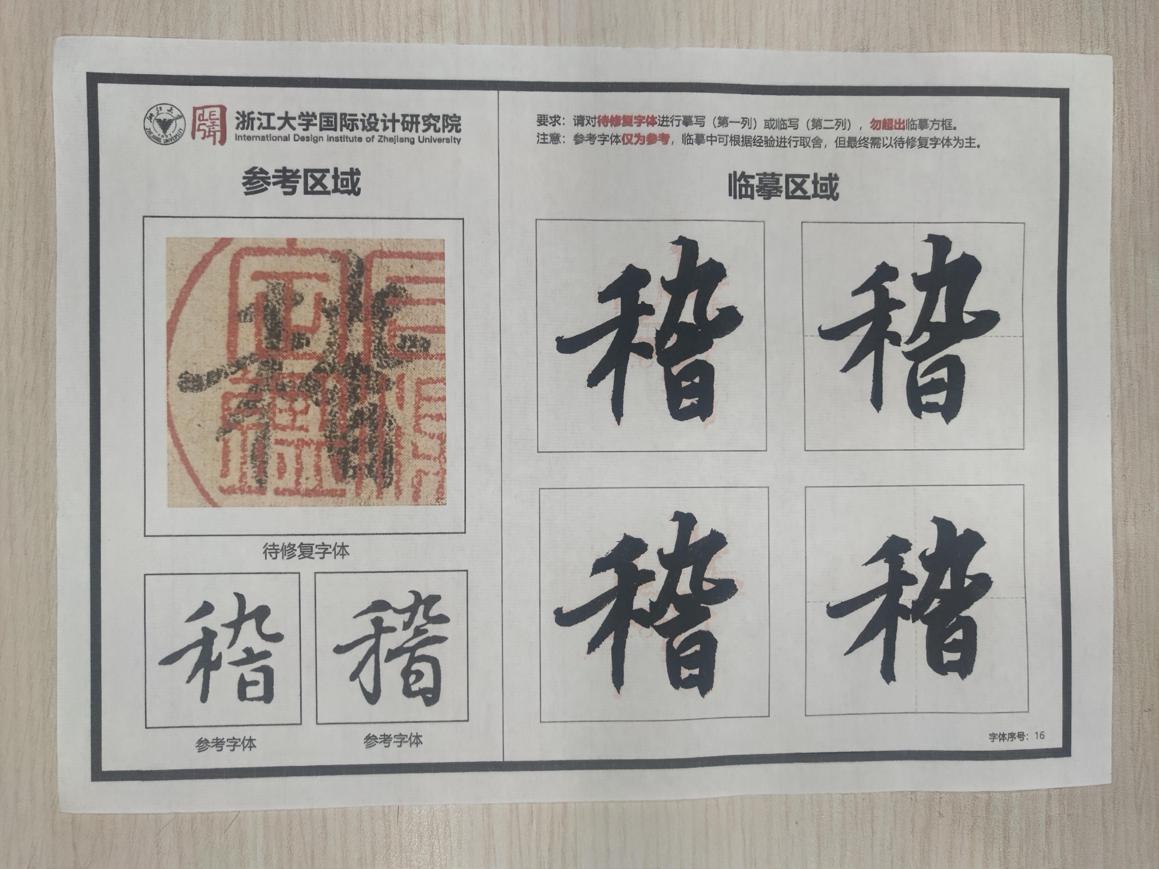 浙江大学国际设计研究院
International Design Institute of Zhejiang University
参考区域
待修复字体
参考字体
参考字体
要求：请对待修复字体进行摹写（第一列）或临写（第二列），勿超出临摹方框。
注意：参考字体仅为参考，临摹中可根据经验进行取舍，但最终需以待修复字体为主。
临摹区域
稽 稽
稽 稽
字体序号：16